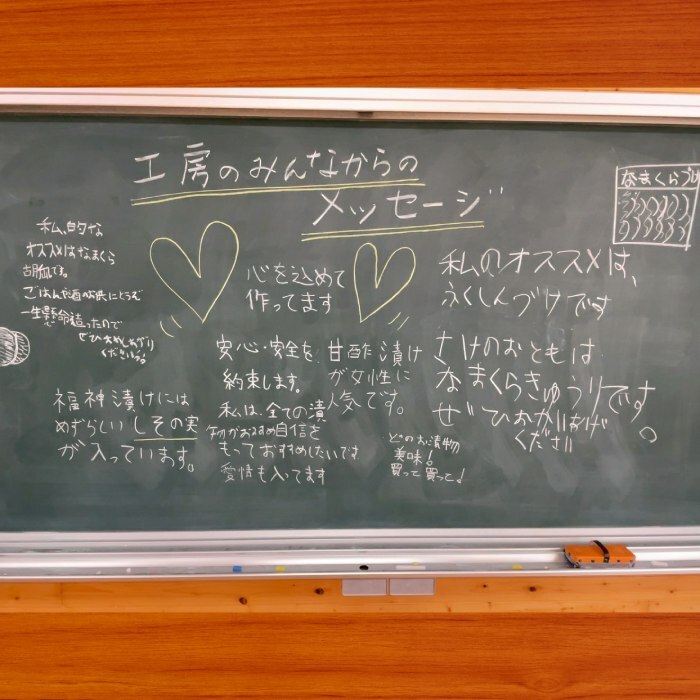 工房のみんなからの
メッセージ
なまくらづけ
私的な
オススメはなまくら
胡瓜です。
ごはんや酒のお供にどうぞ
一生懸命造ったので
ぜひおめしあがり
ください。
心を込めて
作ってます
私のオススメは、
ふくしんづけです
安心・安全を
約束します。
甘酢漬け
が女性に
人気です。
さけのおともは
なまくらきゅうりです。
ぜひおかいあげ
ください
福神漬けには
めずらしいしその実
が入っています。
私は、全ての漬
物がおすすめ自信を
もっておすすめしたいです
愛情も入ってます
どのお漬物
美味!
買って買って!